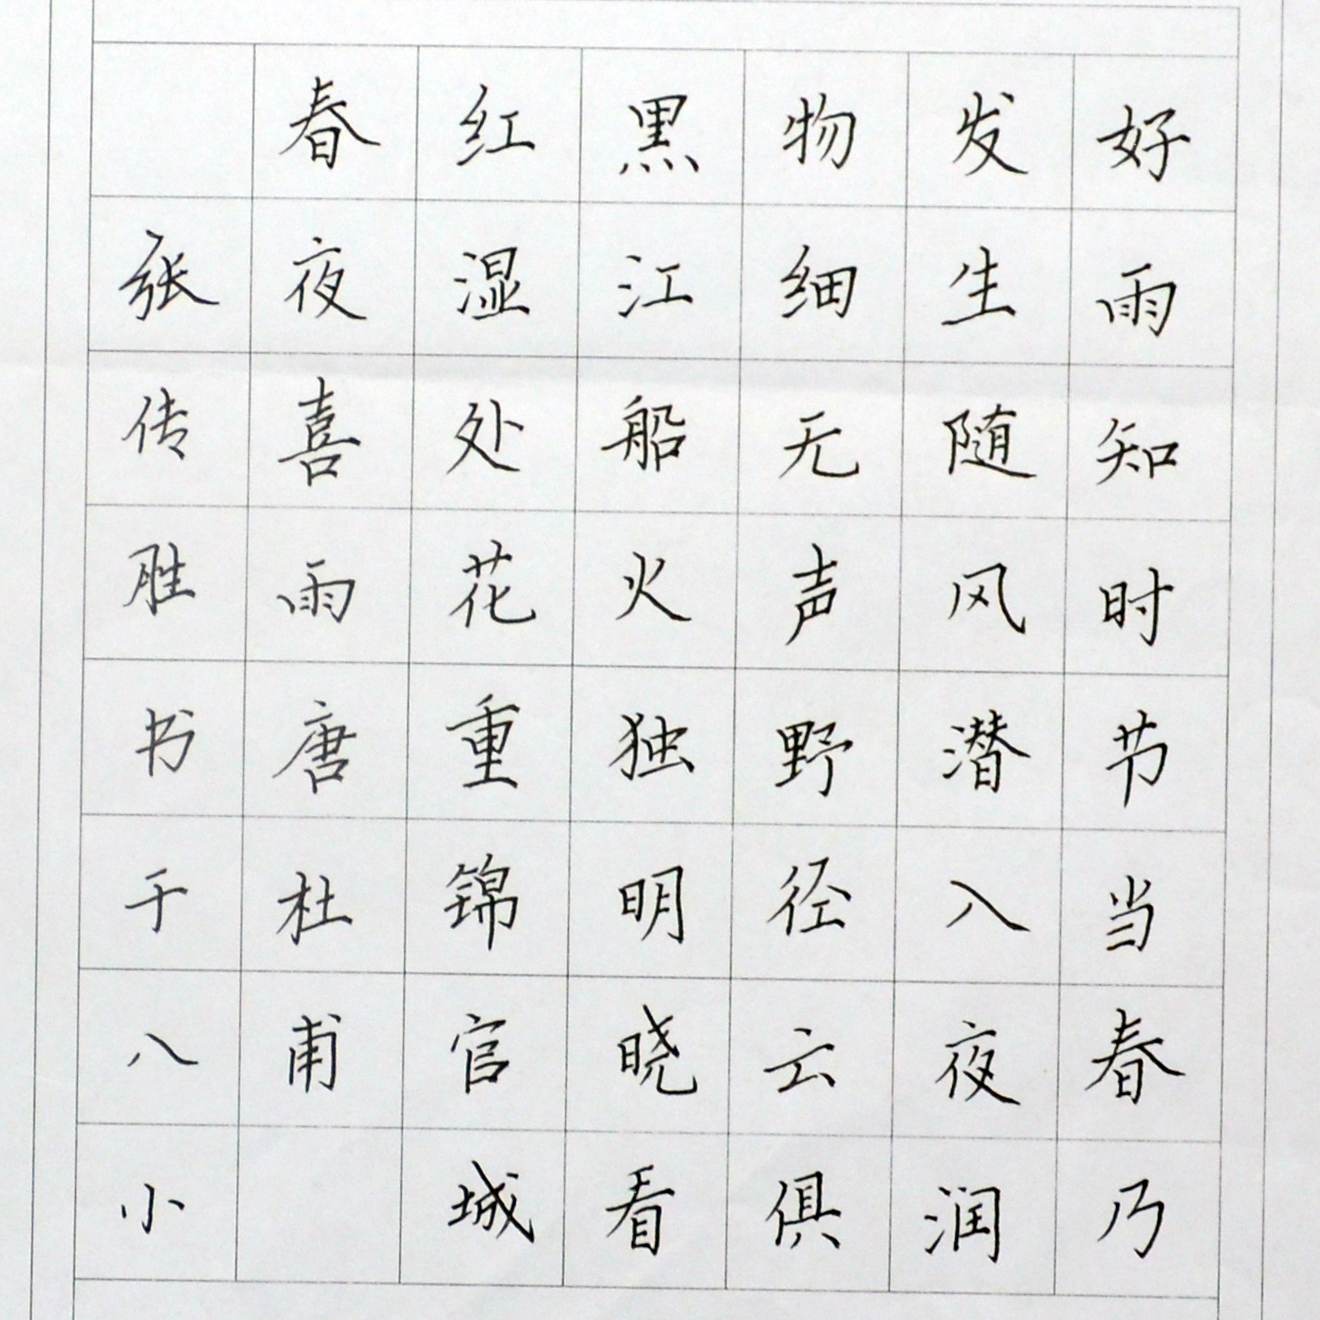 好雨知时节当春乃
发生随风潜入夜润
物细无声野径云俱
黑江船火独明晓看
红湿处花重锦官城
春夜喜雨唐杜甫
张传胜书于八小